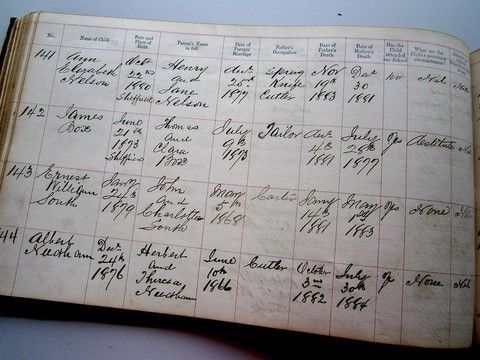 No. Name of Child Date and Place of Birth Parent's Name in full Date of Parents' Marriage Father's Occupation Date of Father's Death Date of Mother's Death Has the Child attended any School What are the Child's
141 Ann Elizabeth Nelson Octr 22nd 1880 Sheffield Henry and Jane Nelson 1877 Spring Knife Cutler Nov 19th 1883 Decr 30 1881 no Nil
142 James Box June 21st 1873 Sheffield Thomas and Clara Box July 9th 1873 Tailor 4th 1881 July 28th 1877 yes destitute
143 Ernest William South 24th 1879 John and Charlotte South May 5th 1868 Carter 14th 1881 May 1st 1883 yes None
144 Albert Needham Decr 24th 1876 Herbert and Theresa Needham June 10th 1866 Cutler October 3rd 1882 July 30th 1884 None